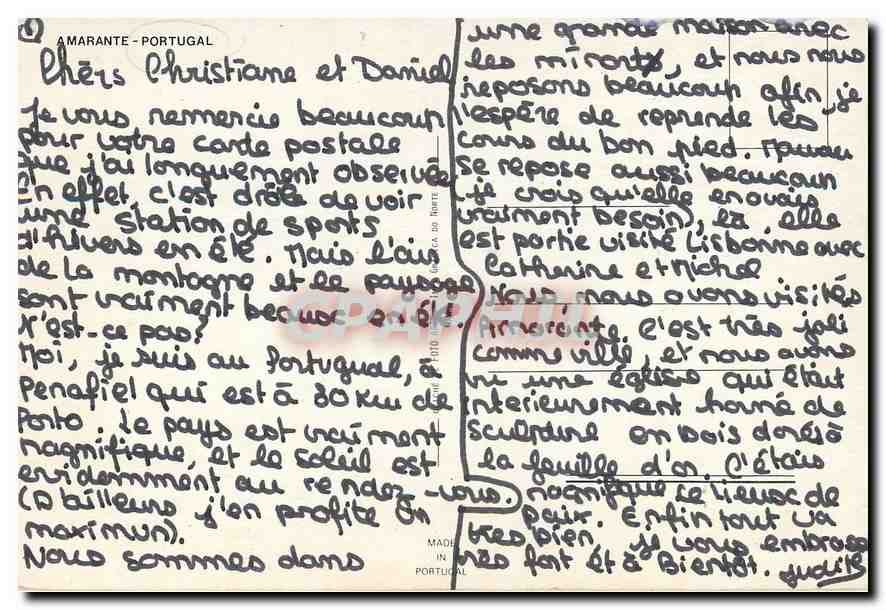 AMARANTE - PORTUGAL
Chèrs Christiane et Daniel
Je vous remercie beaucoup
pour votre carde postale
que j'ai longuement observée
En effet, c'est drôle de voir
une station de sports
d'hivers en été. Mais l'air
de la montagne et le paysage
sont vraiment beaux en été.
N'est-ce pas?
Moi, je suis au Portugual, à
Penafiel qui est à 30 Km de
Porto. Le pays est vraiment
magnifique, et le soleil est
evidemment au rendez-vous.
(D'ailleurs j'en profite on
maximun).
Nous sommes dans
une grande maison avec
les mirort, et nous nous
reposons beaucoup afin je
l'espère de reprende les
cours du bon pied. Maman
se repose aussi beaucoup
(je crois qu'elle en avais
vraiment besoin), et elle
est partie visité Lisbonne avec
Catherine et Michel
Nous nous avons visités
Amarante. C'est très joli
comme ville, et nous avons
vu une église qui était
interieurement horné de
sculpture en bois doré à
la feuille d'or. C'étais
magnifique ce lieux de
paix. Enfin tout va
très bien, je vous embrasse
très fort et à Bientôt. Judith
FOTO
GRÁFICA DO NORTE
MADE
IN
PORTUGAL
CPARAMA